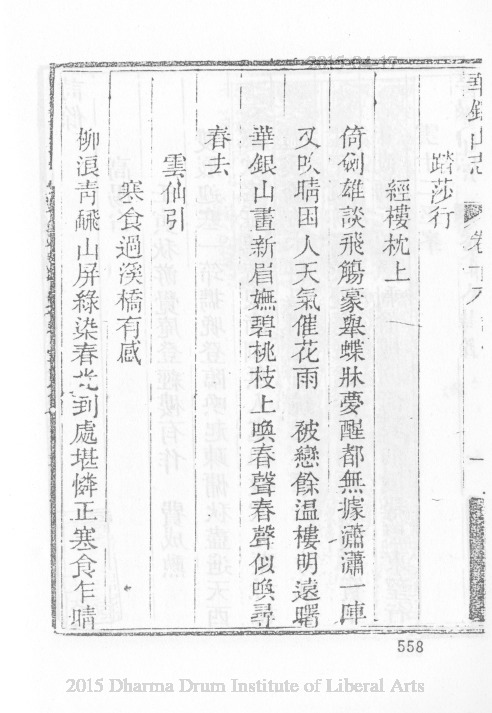 華銀山志 卷十六
踏莎行
經樓枕上
倚劍雄談飛觴豪舉蝶牀夢醒都無據瀟瀟一陣
又吹晴困人天氣催花雨 被戀餘溫樓明遠曙
華銀山畫新眉嫵碧桃枝上喚春聲春聲似喚尋
春去
雲仙引
寒食過溪橋有感
柳浪青 山屏綠染春光到處堪憐正寒食乍晴
558
2015 Dharma Drum Institute of Liberal Arts